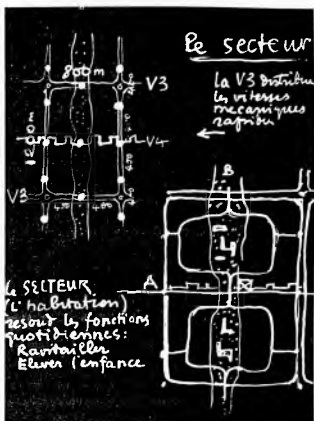 Le secteur
800 m
V3
la V3 distribue
les vitesses
mécaniques
rapides
V4
V3
400 400
B
A
Le SECTEUR
(L'habitation)
résout les fonctions
quotidiennes:
Ravitailler
Élever l'enfance